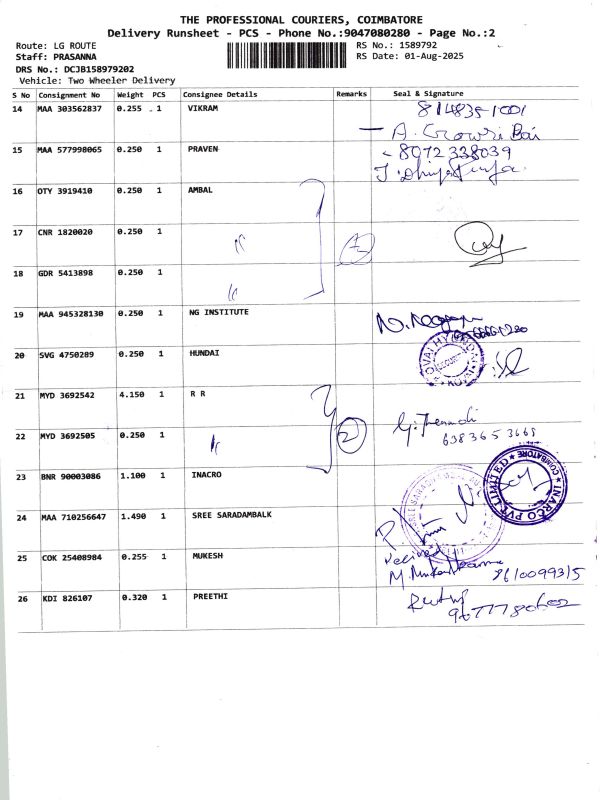 THE PROFESSIONAL COURIERS, COIMBATORE
Delivery Runsheet - PCS - Phone No.:9047080280 - Page No.:2
Route: LG ROUTE
RS No.: 1589792
Staff: PRASANNA
RS Date: 01-Aug-2025
DRS No.: DCJB158979202
Vehicle: Two Wheeler Delivery
S No Consignment No Weight PCS Consignee Details Remarks Seal & Signature
14 MAA 303562837 0.255 1 VIKRAM
15 MAA 577998065 0.250 1 PRAVEN 8072338039
16 OTY 3919410 0.250 1 AMBAL
17 CNR 1820020 0.250 1 "
18 GDR 5413898 0.250 1 "
19 MAA 945328130 0.250 1 NG INSTITUTE
20 SVG 4750289 0.250 1 HUNDAI
21 MYD 3692542 4.150 1 R R
22 MYD 3692505 0.250 1 " 2 6383653669
23 BNR 90003086 1.100 1 INACRO
INARCO PVT. LIMITED COIMBATORE
24 MAA 710256647 1.490 1 SREE SARADAMBALK
25 COK 25408984 0.255 1 MUKESH 8610099315
26 KDI 826107 0.320 1 PREETHI